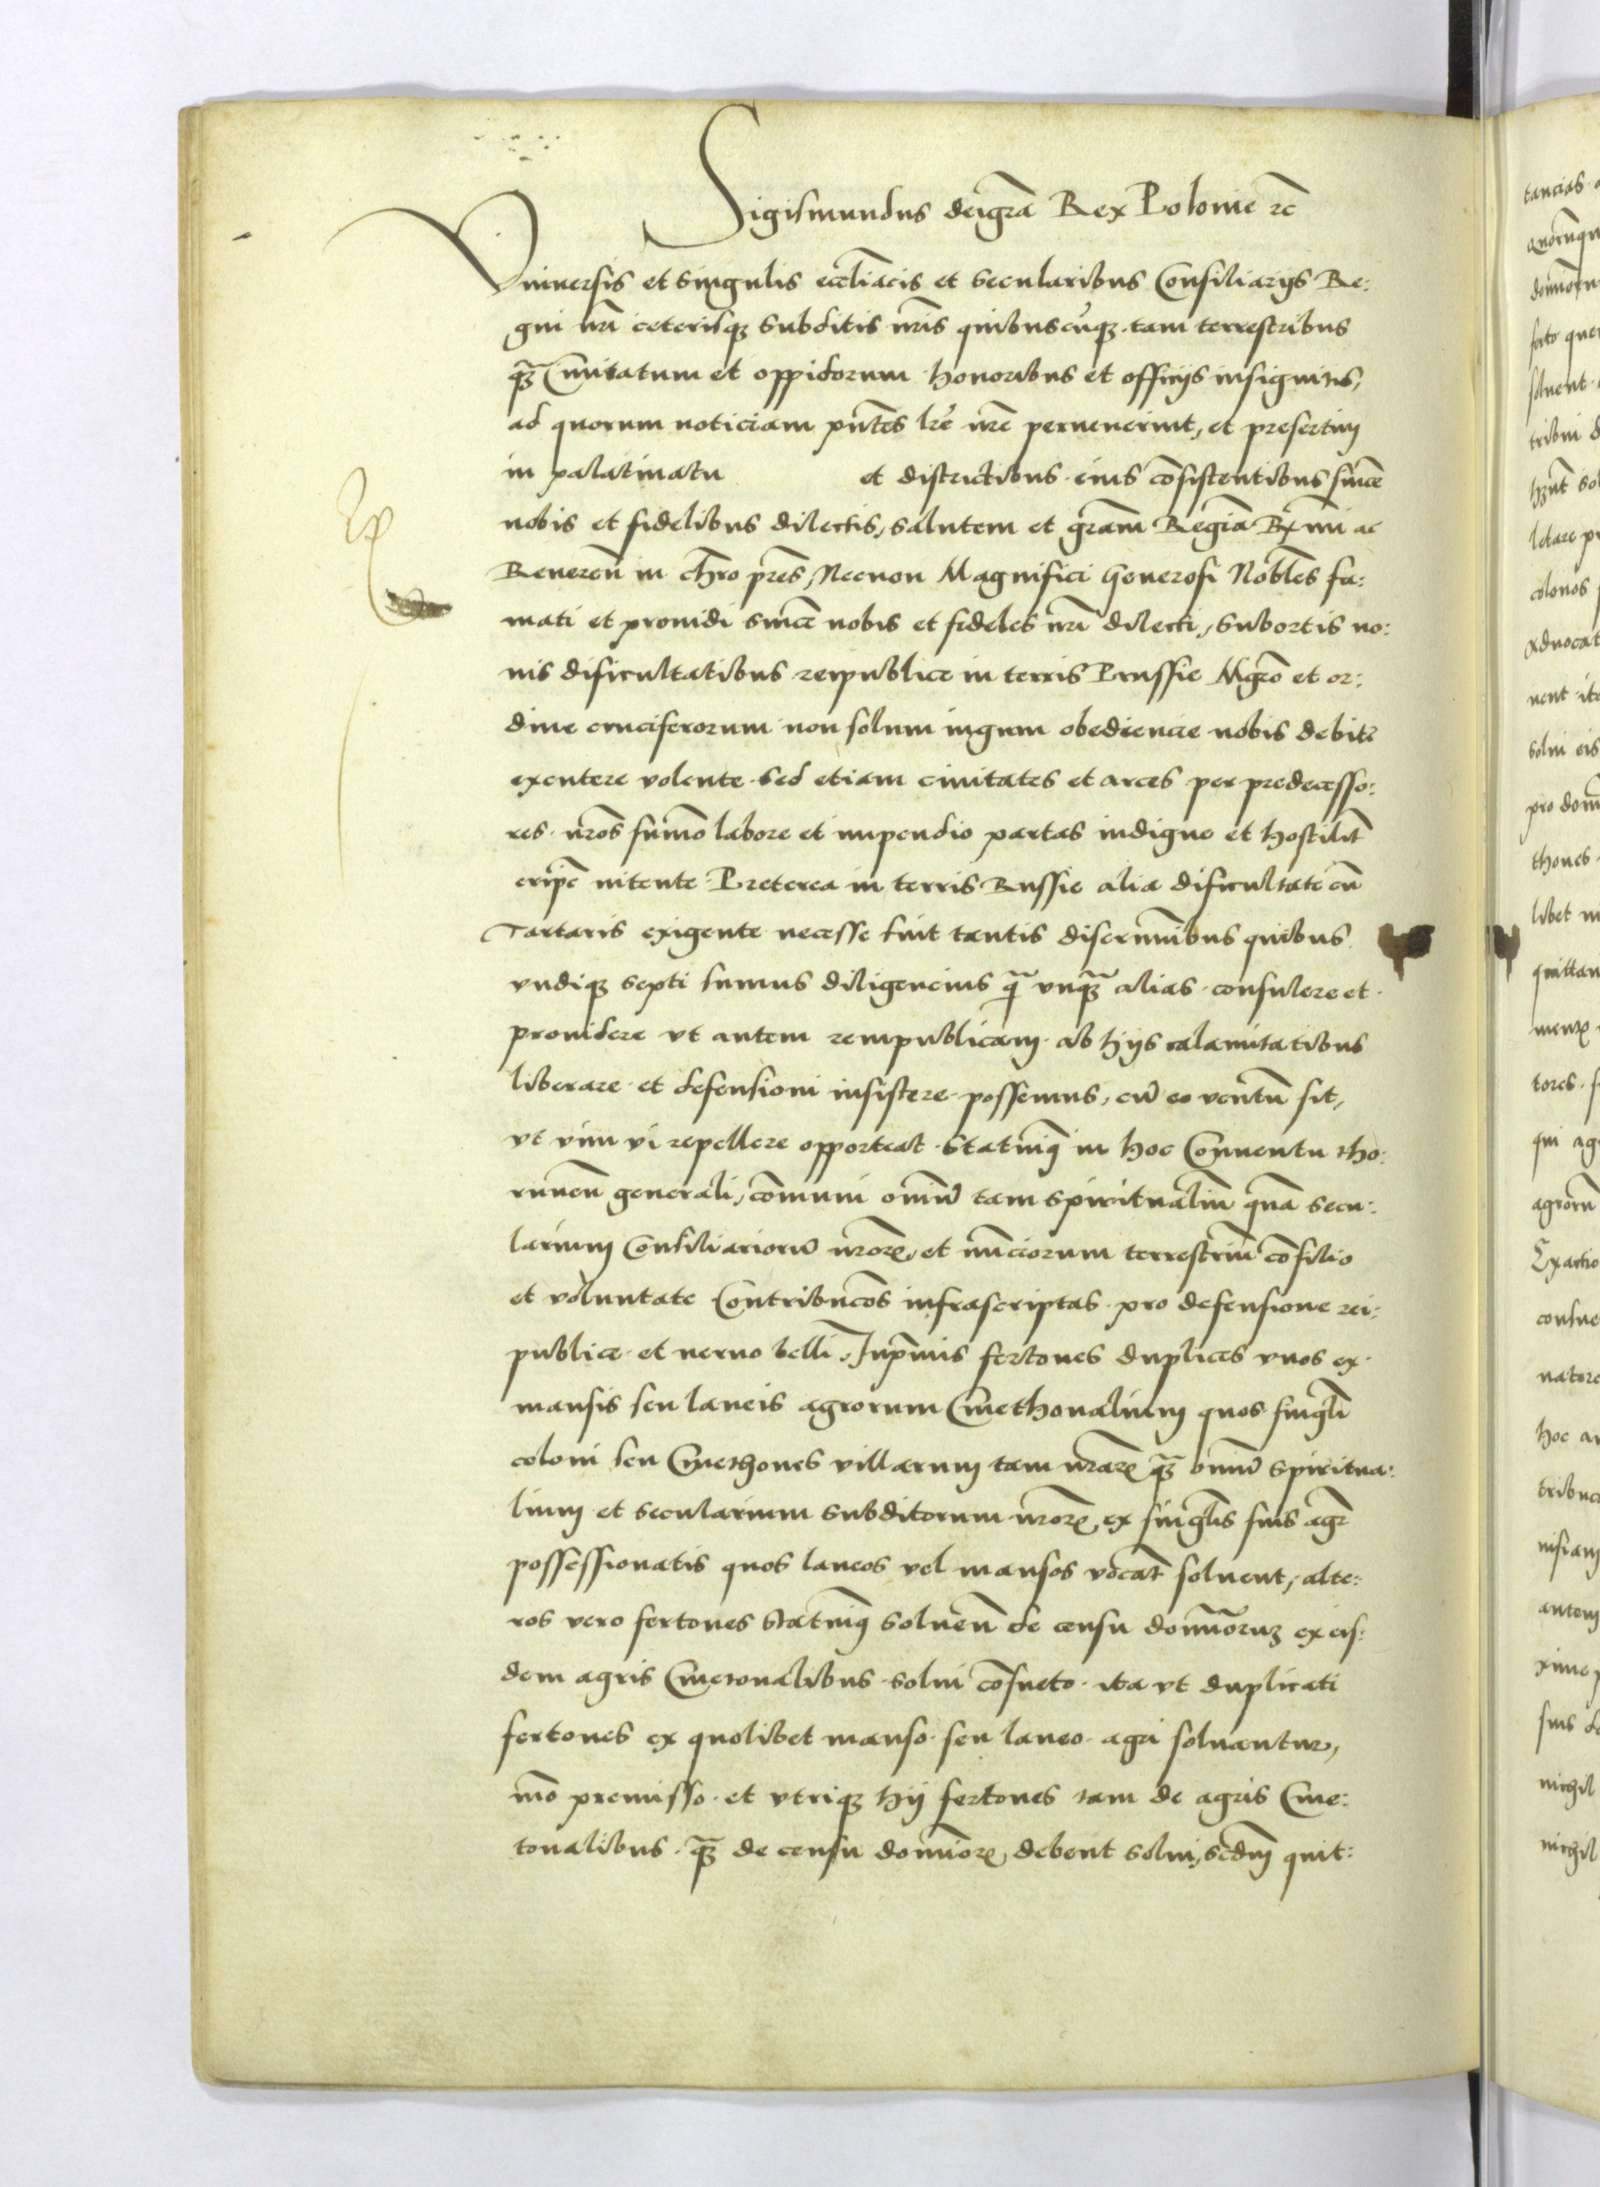 Sigismundus deigrã Rex Polonie rc̃
Vniuersis et singulis eccliãcis et secularibus Consiliarijs Re:
gni nrĩ ceterisqꝫ subditis nrĩs quibuscũqꝫ tam terrestribus
qꝫ̃ Ciuitatum et oppidorum honoribus et officijs insignitis,
ad quorum noticiam pñtes lrẽ nrẽ peruenerint, et presertim
in palatinatu et districtibus eius cõsistentibus sincẽ
nobis et fidelibus dilectis, salutem et grãm Regiã Rꝫ̃mi ac
Reuereñ in chrõ prẽs, Necnon Magnifici Generosi Nobles̃ fa:
mati et prouidi sincẽ nobis et fideles nrĩ dilecti, Subortis no:
uis dificultatibus reipublice in terris Prussie Mgrõ et or:
dine cruciferorum non solum iugum obediencie nobis debitẽ
excutere volente sed etiam ciuitates et arces per predecesso:
res nrõs sum̃o labore et impendio partas indigne et hostilit̃
eripẽ nitente Preterea in terris Russie alia dificultate cũ
Tartaris exigente necesse fuit tantis discriminĩbus quibus
vndiqꝫ septi sumus diligencius qã̃ vnqꝫ̃ alias consulere et
prouidere vt autem rempublicam ab hijs calamitatibus
liberare et defensioni insistere possemus, cũ eo ventũ sit,
vt vim vi repellere opporteat Statuimꝰ in hoc Conuentu Tho:
runeñ generali, com̃uni omniũ tam spiritualiũ quã secu:
larium Consiliariorũ nrõrꝝ, et nũnciorum terrestriũ cõsilio
et voluntate Contribucões infrascriptas pro defensione rei:
publice et neruo belli. Inp̃mis fertones duplices vnos ex
mansis seu laneis agrorum Cmethonalium quos singl̃i
coloni seu Cmethones villarum tam nrãrꝝ qꝫ̃ omniũ spiritua:
lium et secularium subditorum nrõrꝝ ex singl̃is suis agr̃
possessionatis quos laneos vel mansos vocãt soluent, alte:
ros vero fertones statuimꝰ soluẽn de censu dominõruꝫ ex eis:
dem agris Cmetonalibus solui cõsueto ita vt duplicati
fertones ex quolibet manso seu laneo agri soluantur,
mõ premisso et vtriqꝫ hij fertones tam de agris Cme:
tonalibus qꝫ̃ de censu dominõrꝝ debent solui, scdm̃ quit: